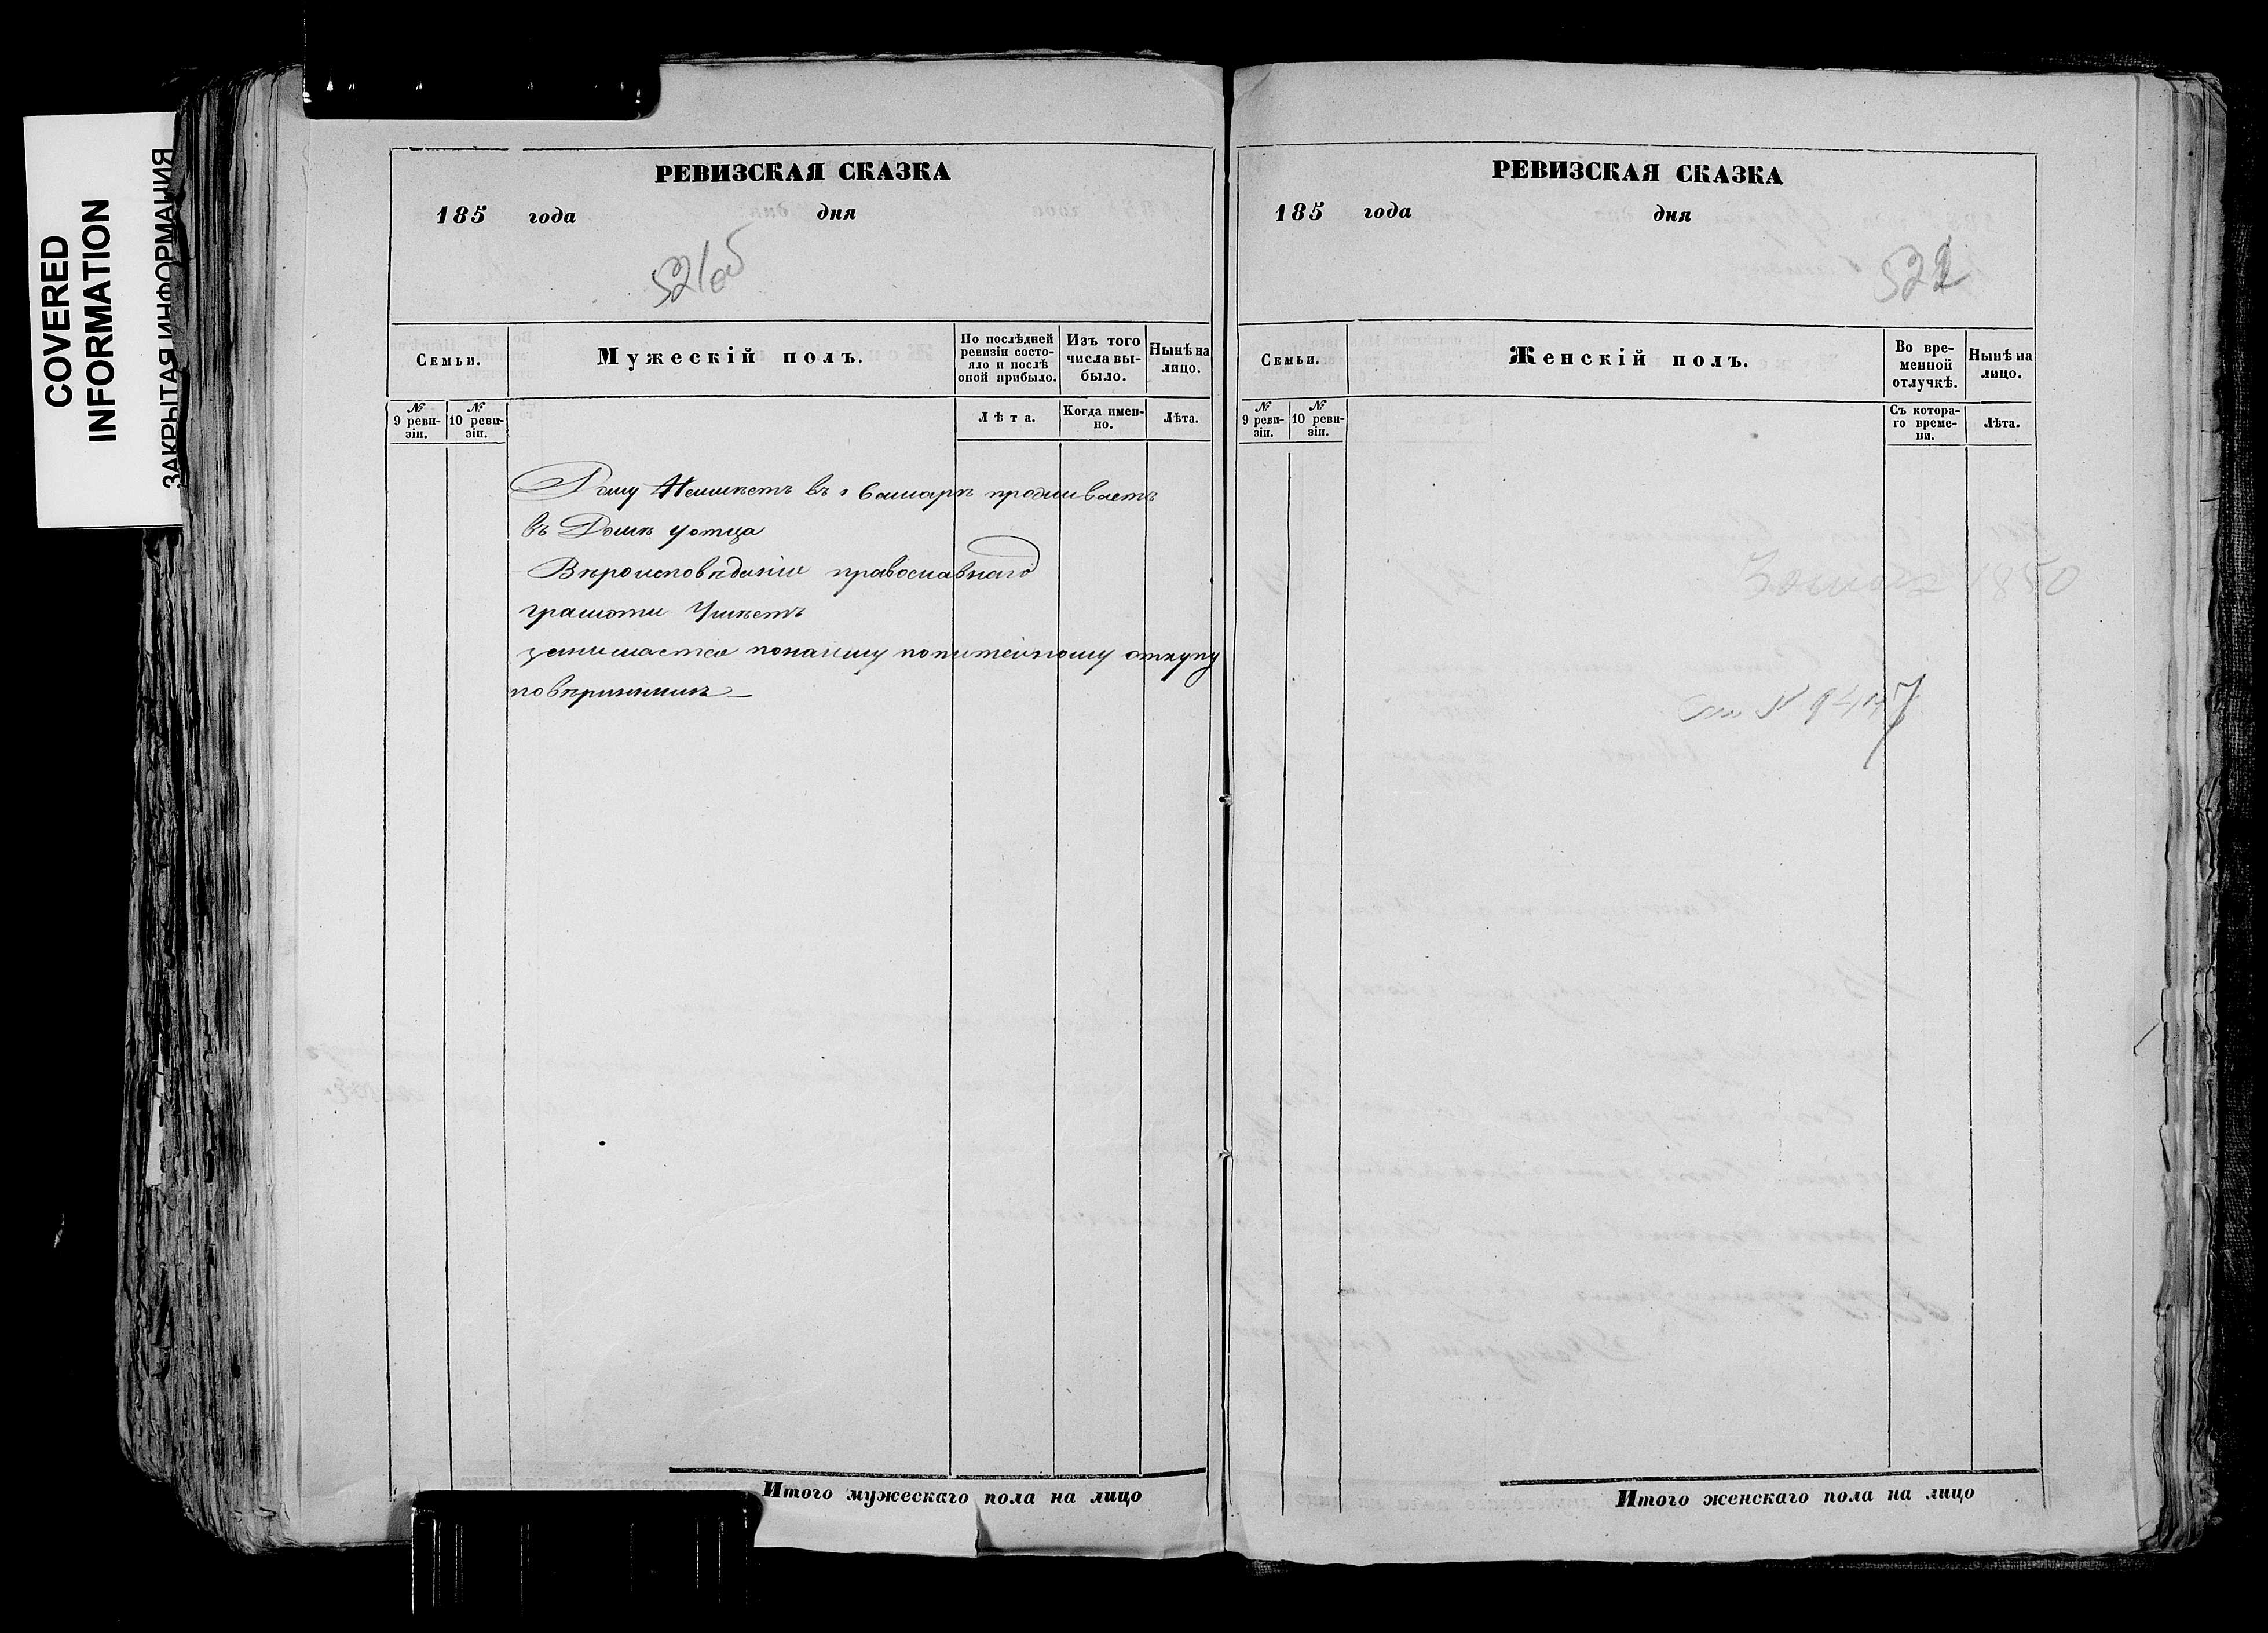 COVERED
INFORMATION
ЗАКРЫТАЯ ИНФОРМАЦИЯ
РЕВИЗСКАЯ СКАЗКА
185 года дня
521об
Семьи.
Мужескій полъ.
По послѣдней ревизіи состояло и послѣ оной прибыло.
Изъ того числа выбыло.
Нынѣ на лицо.
№ 9 ревизіи.
№ 10 ревизіи.
Лѣта.
Когда именно.
Лѣта.
Дому Неимѣетъ въ г Самарѣ проживаетъ
въ Домѣ у отца
Вѣроисповѣданія православнаго
грамоти Умѣетъ
занимается по питейному откупу
Итого мужескаго пола на лицо
РЕВИЗСКАЯ СКАЗКА
185 года дня
522
Семьи.
Женскій полъ.
Во временной отлучкѣ.
Нынѣ на лицо.
№ 9 ревизіи.
№ 10 ревизіи.
Съ котораго времени.
Лѣта.
1850
Итого женскаго пола на лицо